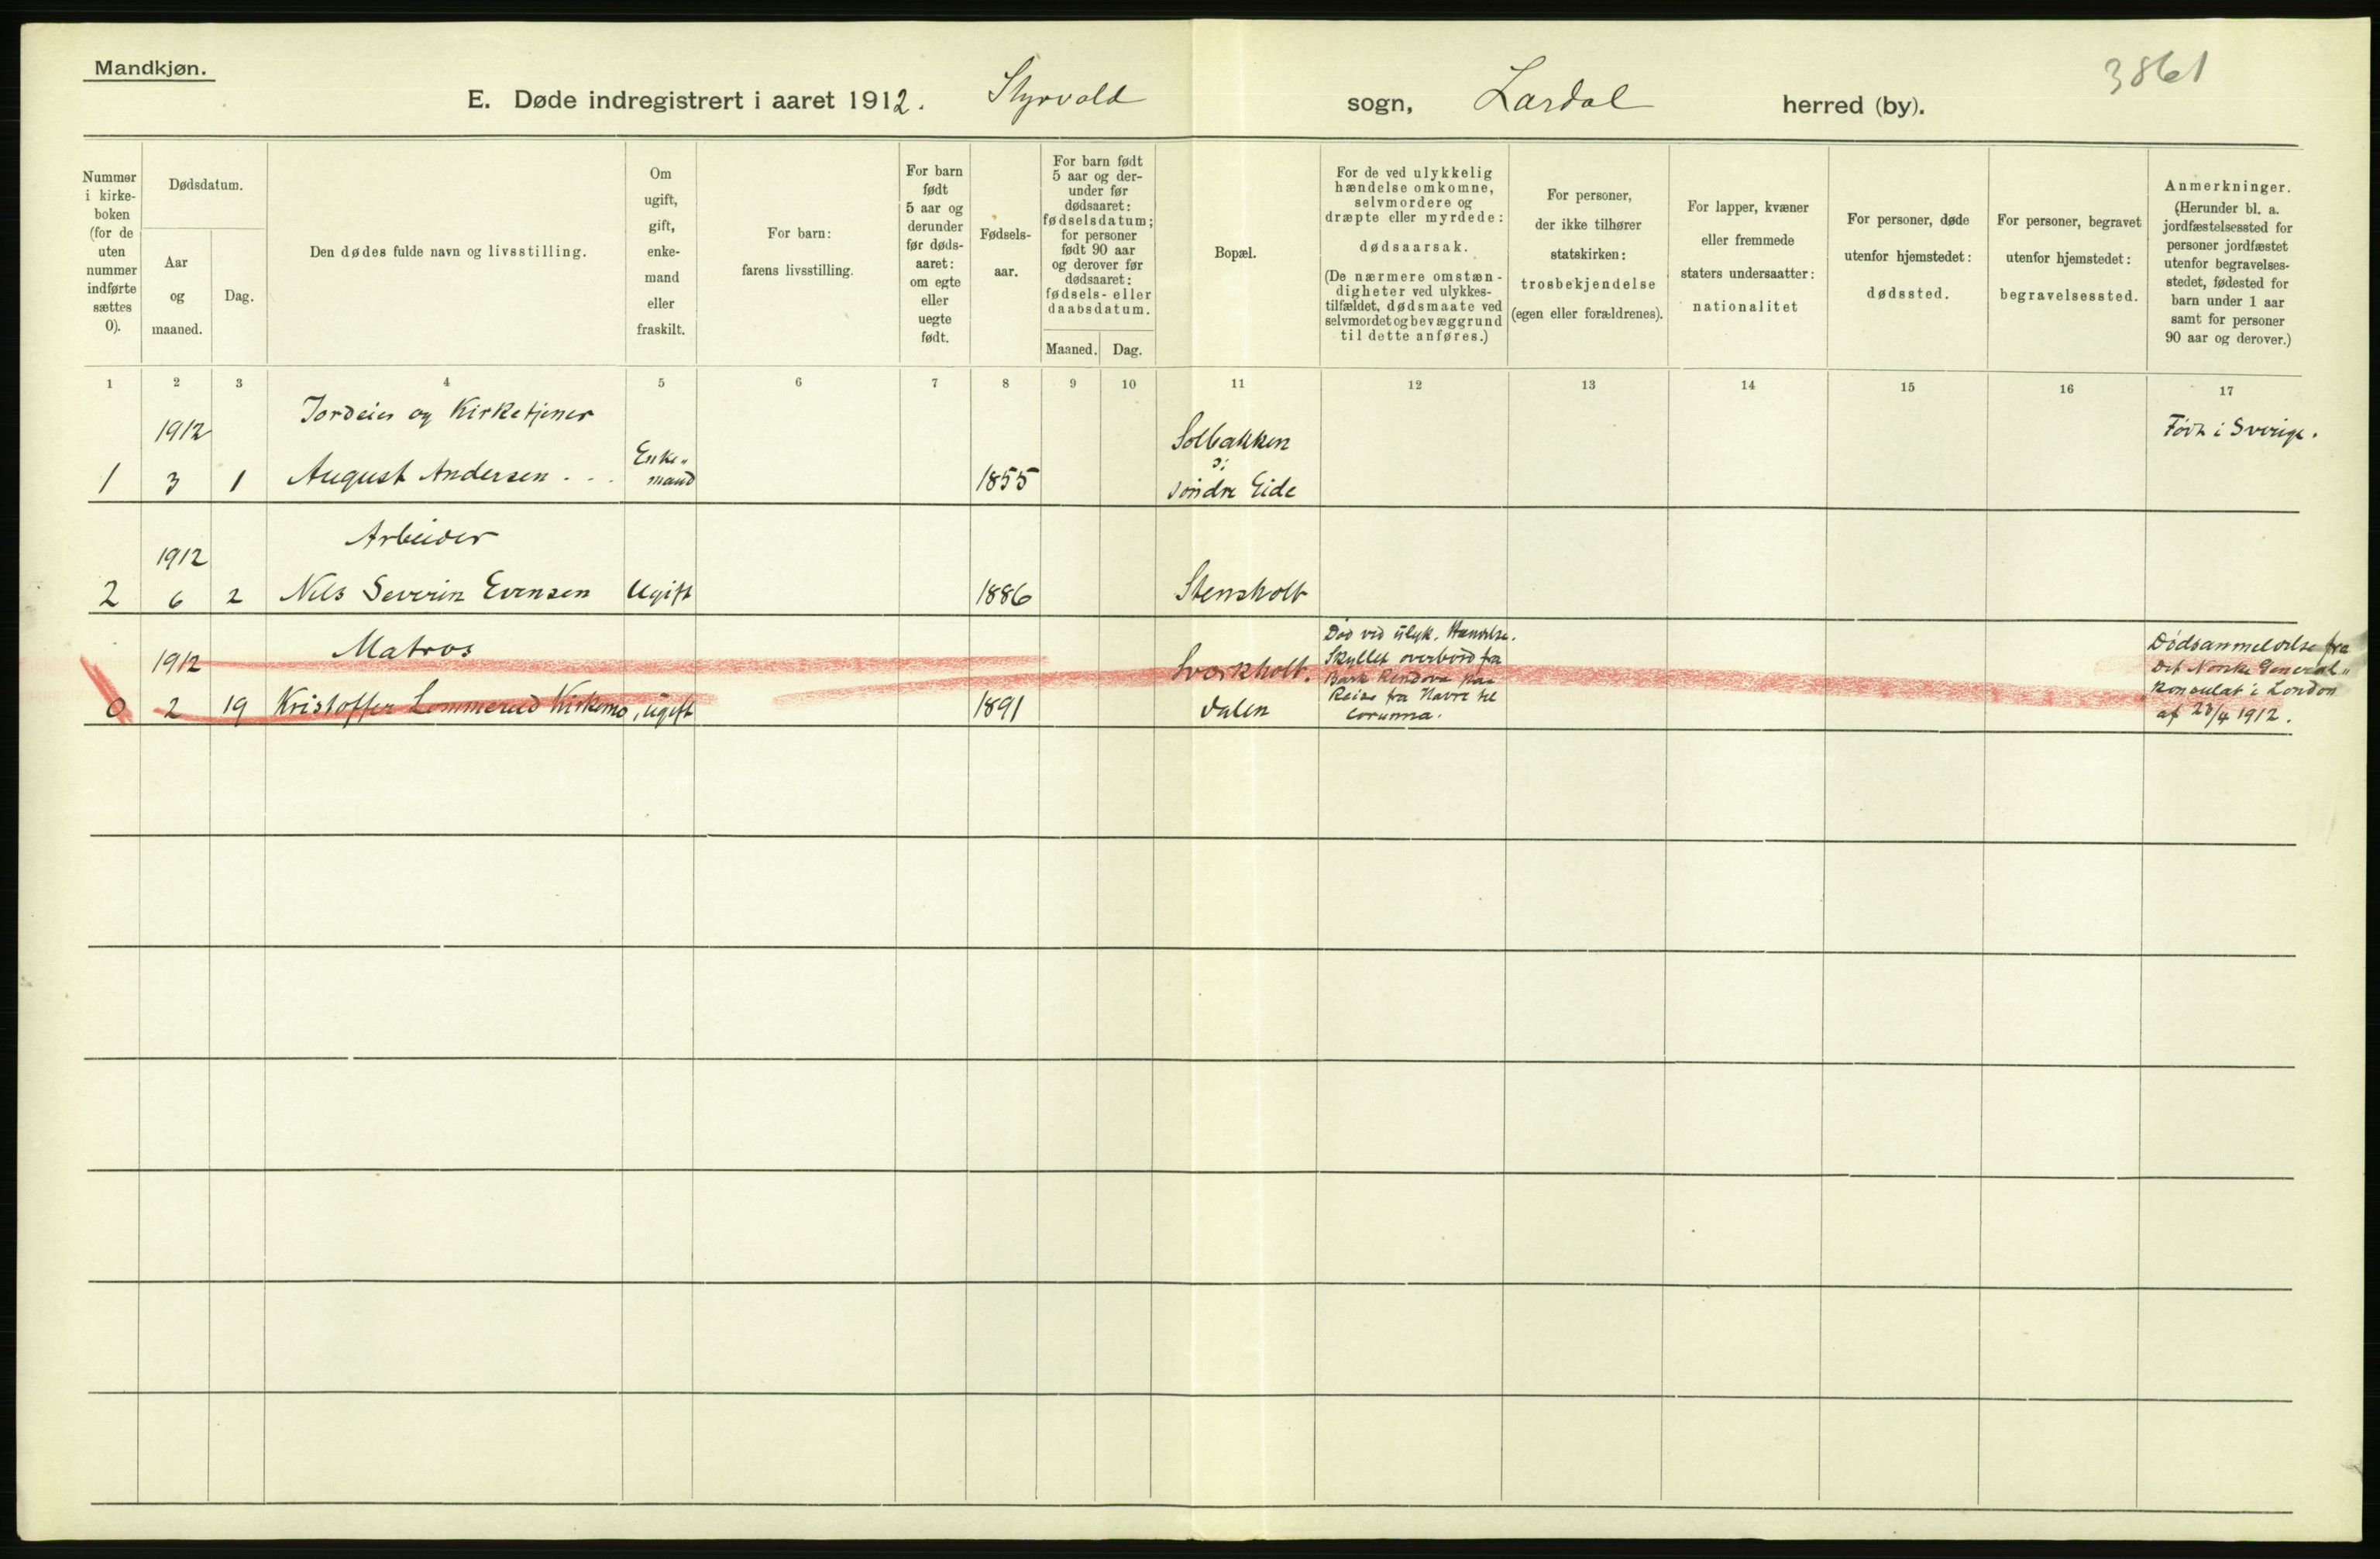 Mandkjøn.
3861
E. Døde indregistrert i aaret 1912. Styrvold sogn, Lardal herred (by).
Nummer
i kirke-
boken
(for de
uten
nummer
indførte
sættes
0).
Dødsdatum.
Aar
og
maaned.
Dag.
Den dødes fulde navn og livsstilling.
Om
ugift,
gift,
enke-
mand
eller
fraskilt.
For barn:
farens livsstilling.
For barn
født
5 aar og
derunder
før døds-
aaret:
om egte
eller
uegte
født.
Fødsels-
aar.
For barn født
5 aar og der-
under før
dødsaaret:
fødselsdatum;
for personer
født 90 aar
og derover før
dødsaaret:
fødsels- eller
daabsdatum.
Maaned. Dag.
Bopæl.
For de ved ulykkelig
hændelse omkomne,
selvmordere og
dræpte eller myrdede:
dødsaarsak.
(De nærmere omstæn-
digheter ved ulykkes-
tilfældet, dødsmaate ved
selvmordet og bevæggrund
til dette anføres.)
For personer,
der ikke tilhører
statskirken:
trosbekjendelse
(egen eller forældrenes).
For lapper, kvæner
eller fremmede
staters undersaatter:
nationalitet
For personer, døde
utenfor hjemstedet:
dødssted.
For personer, begravet
utenfor hjemstedet:
begravelsessted.
Anmerkninger.
(Herunder bl. a.
jordfæstelsessted for
personer jordfæstet
utenfor begravelses-
stedet, fødested for
barn under 1 aar
samt for personer
90 aar og derover.)
1 2 3 4 5 6 7 8 9 10 11 12 13 14 15 16 17
1
1912
3
1
Jordeier og Kirketjener
August Andersen . . .
Enke„
mand
1855
Solbakken
søndre Eide
Født i Sverige.
2
1912
6
2
Arbeider
Nils Severin Evensen
Ugift
1886
Stensholt
0
1912
2
19
Matros
Kristoffer Lommerud Kirkemo,
ugift
1891
Svarkholt.
dalen
Død ved ulyk. Hændelse.
Skyllet overbord fra
Bark Rendova paa
Reise fra Havre til
Corunna.
Dødsanmeldelse fra
Det Norske General„
konsulat i London
af 23/4 1912.